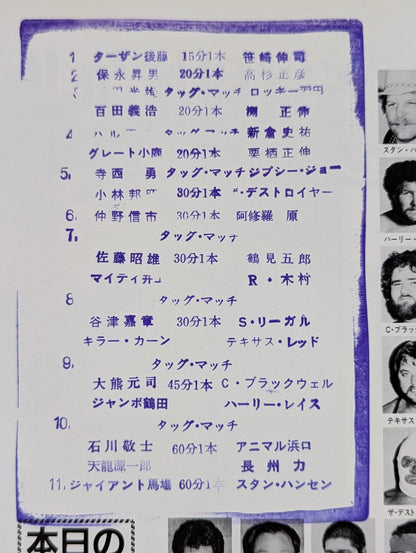 1 ターザン後藤 15分1本 笹崎伸司
2 保永昇男 20分1本 高杉正彦
タッグ・マッチ ロッキー羽田
百田義浩 20分1本 渕 正伸
4 タッグマッチ 新倉史祐
グレート小鹿 20分1本 栗栖正伸
5, 寺西 勇 タッグ・マッチ ジプシー・ジョー
小林邦昭 30分1本 ・デストロイヤー
6, 仲野信市 30分1本 阿修羅 原
7, タッグ・マッチ
佐藤昭雄 30分1本 鶴見五郎
マイティ井上 R・木村
8 タッグ・マッチ
谷津嘉章 30分1本 S・リーガル
キラー・カーン テキサス・レッド
9, タッグ・マッチ
大熊元司 45分1本 C・ブラックウェル
ジャンボ鶴田 ハーリー・レイス
10, タッグ・マッチ
石川敬士 60分1本 アニマル浜口
天龍源一郎 長州 力
11, ジャイアント馬場 60分1本 スタン・ハンセン
スタン・ハ
ハーリー・
C・ブラック
テキサス
ザ・デスト
本日の